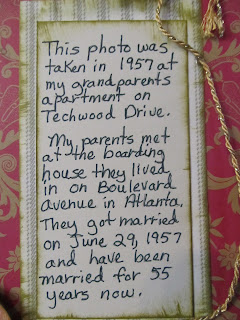 This photo was
taken in 1957 at
my grandparents
apartment on
Techwood Drive.
My parents met
at the boarding
house they lived
in on Boulevard
avenue in Atlanta.
They got married
on June 29, 1957
and have been
married for 55
years now.